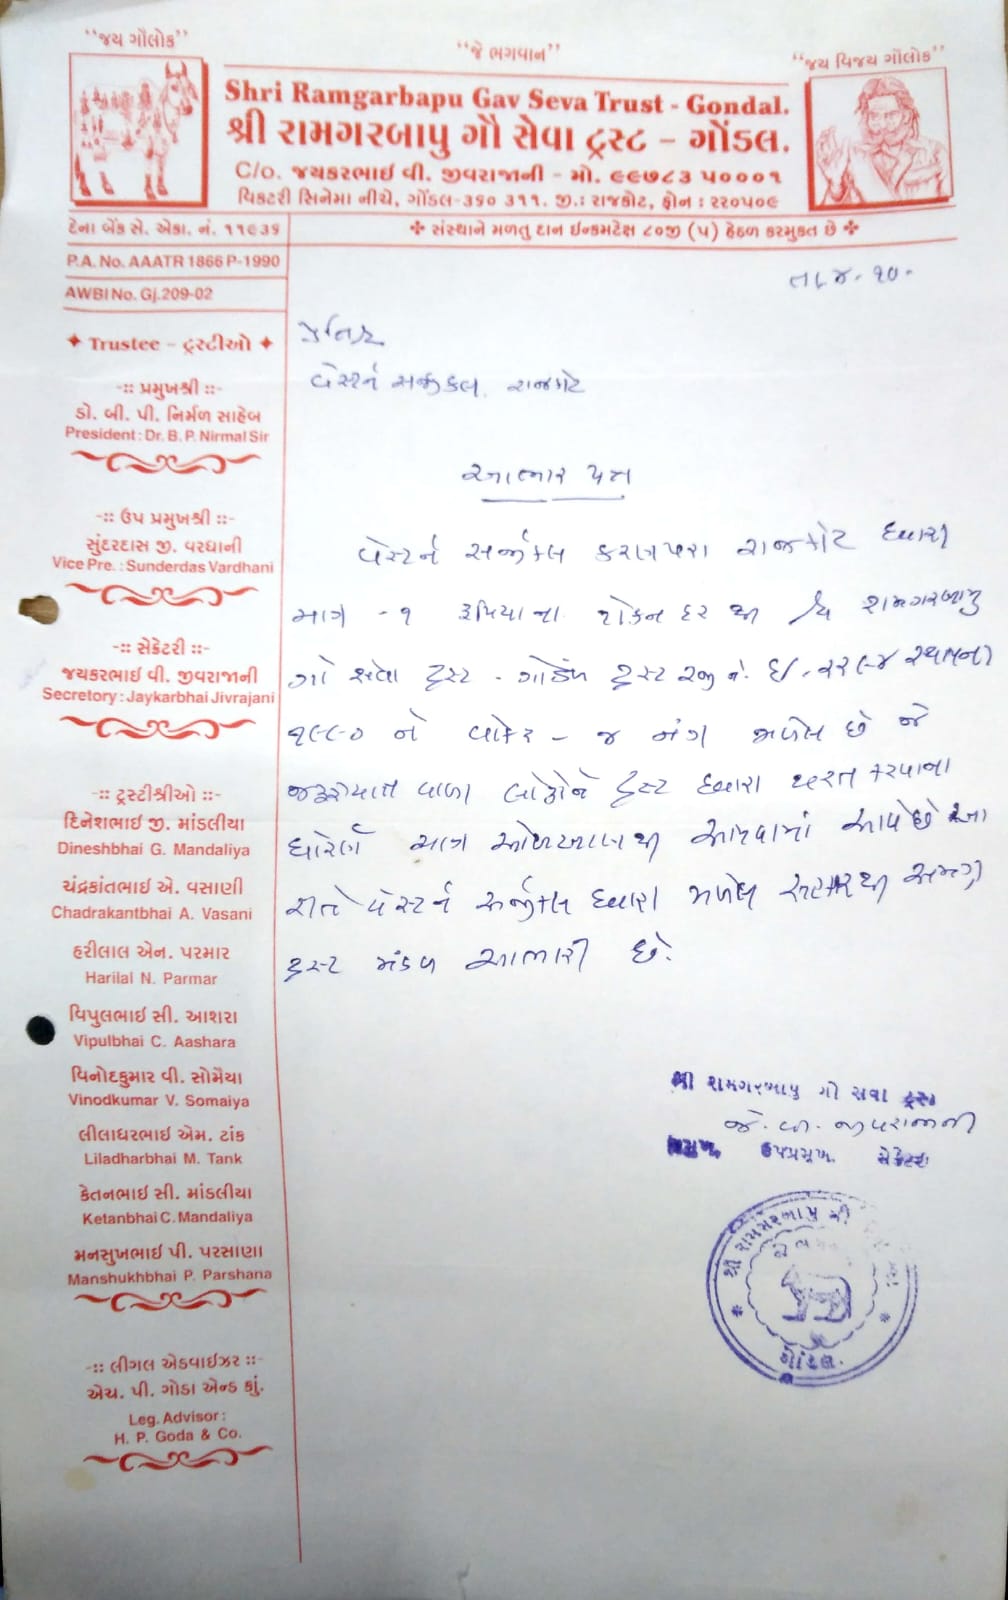 "જય ગૌલોક"
"જે ભગવાન"
"જય વિજય ગૌલોક"
Shri Ramgarbapu Gav Seva Trust - Gondal.
શ્રી રામગરબાપુ ગૌ સેવા ટ્રસ્ટ - ગોંડલ.
C/o. જયકરભાઈ વી. જીવરાજાની - મો. ૯૯૭૮૩ ૫૦૦૦૧
વિક્ટરી સિનેમા નીચે, ગોંડલ-૩૬૦ ૩૧૧. જી.: રાજકોટ, ફોન : ૨૨૦૫૦૯
દેના બેંક સે. એકા. નં. ૧૧૯૩૬
✤ સંસ્થાને મળતુ દાન ઈન્કમટેક્ષ ૮૦જી (૫) હેઠળ કરમુકત છે ✤
P.A. No. AAATR 1866 P-1990
AWBI No. Gj.209-02
✦ Trustee - ટ્રસ્ટીઓ ✦
-:: પ્રમુખશ્રી ::-
ડો. બી. પી. નિર્મળ સાહેબ
President : Dr. B. P. Nirmal Sir
-:: ઉપ પ્રમુખશ્રી ::-
સુંદરદાસ જી. વરધાની
Vice Pre. : Sunderdas Vardhani
-:: સેક્રેટરી ::-
જયકરભાઈ વી. જીવરાજાની
Secretory : Jaykarbhai Jivrajani
-:: ટ્રસ્ટીશ્રીઓ ::-
દિનેશભાઈ જી. માંડલીયા
Dineshbhai G. Mandaliya
ચંદ્રકાંતભાઈ એ. વસાણી
Chadrakantbhai A. Vasani
હરીલાલ એન. પરમાર
Harilal N. Parmar
વિપુલભાઈ સી. આશરા
Vipulbhai C. Aashara
વિનોદકુમાર વી. સોમૈયા
Vinodkumar V. Somaiya
લીલાધરભાઈ એમ. ટાંક
Liladharbhai M. Tank
કેતનભાઈ સી. માંડલીયા
Ketanbhai C. Mandaliya
મનસુખભાઈ પી. પરસાણા
Manshukhbhai P. Parshana
-:: લીગલ એડવાઈઝર ::-
એચ. પી. ગોડા એન્ડ કું.
Leg. Advisor :
H. P. Goda & Co.
પ્રતિશ્રી
વેસ્ટર્ન સર્જીકલ, રાજકોટ
આભાર પત્ર
વેસ્ટર્ન સર્જીકલ કરણપરા રાજકોટ દ્વારા
માત્ર - ૧ રૂપિયાના ટોકન દર થી શ્રી રામગરબાપુ
ગૌ સેવા ટ્રસ્ટ - ગોંડલ ટ્રસ્ટ રજી નં.
૧૯૯૦ ને વોકર - નંગ મળેલ છે જે
જરૂરીયાત વાળા લોકોને ટ્રસ્ટ દ્વારા પરત કરવાના
ધોરણે માત્ર ઓળખાણ થી આપવામાં આવે છે આ
રીતે વેસ્ટર્ન સર્જીકલ દ્વારા મળેલ સહકાર થી અમારૂ
ટ્રસ્ટ મંડળ આભારી છે.
શ્રી રામગરબાપુ ગૌ સેવા ટ્રસ્ટ
જે. વી. જીવરાજાની
પ્રમુખ ઉપપ્રમુખ સેક્રેટરી
શ્રી રામગરબાપુ ગૌ
ગોંડલ.